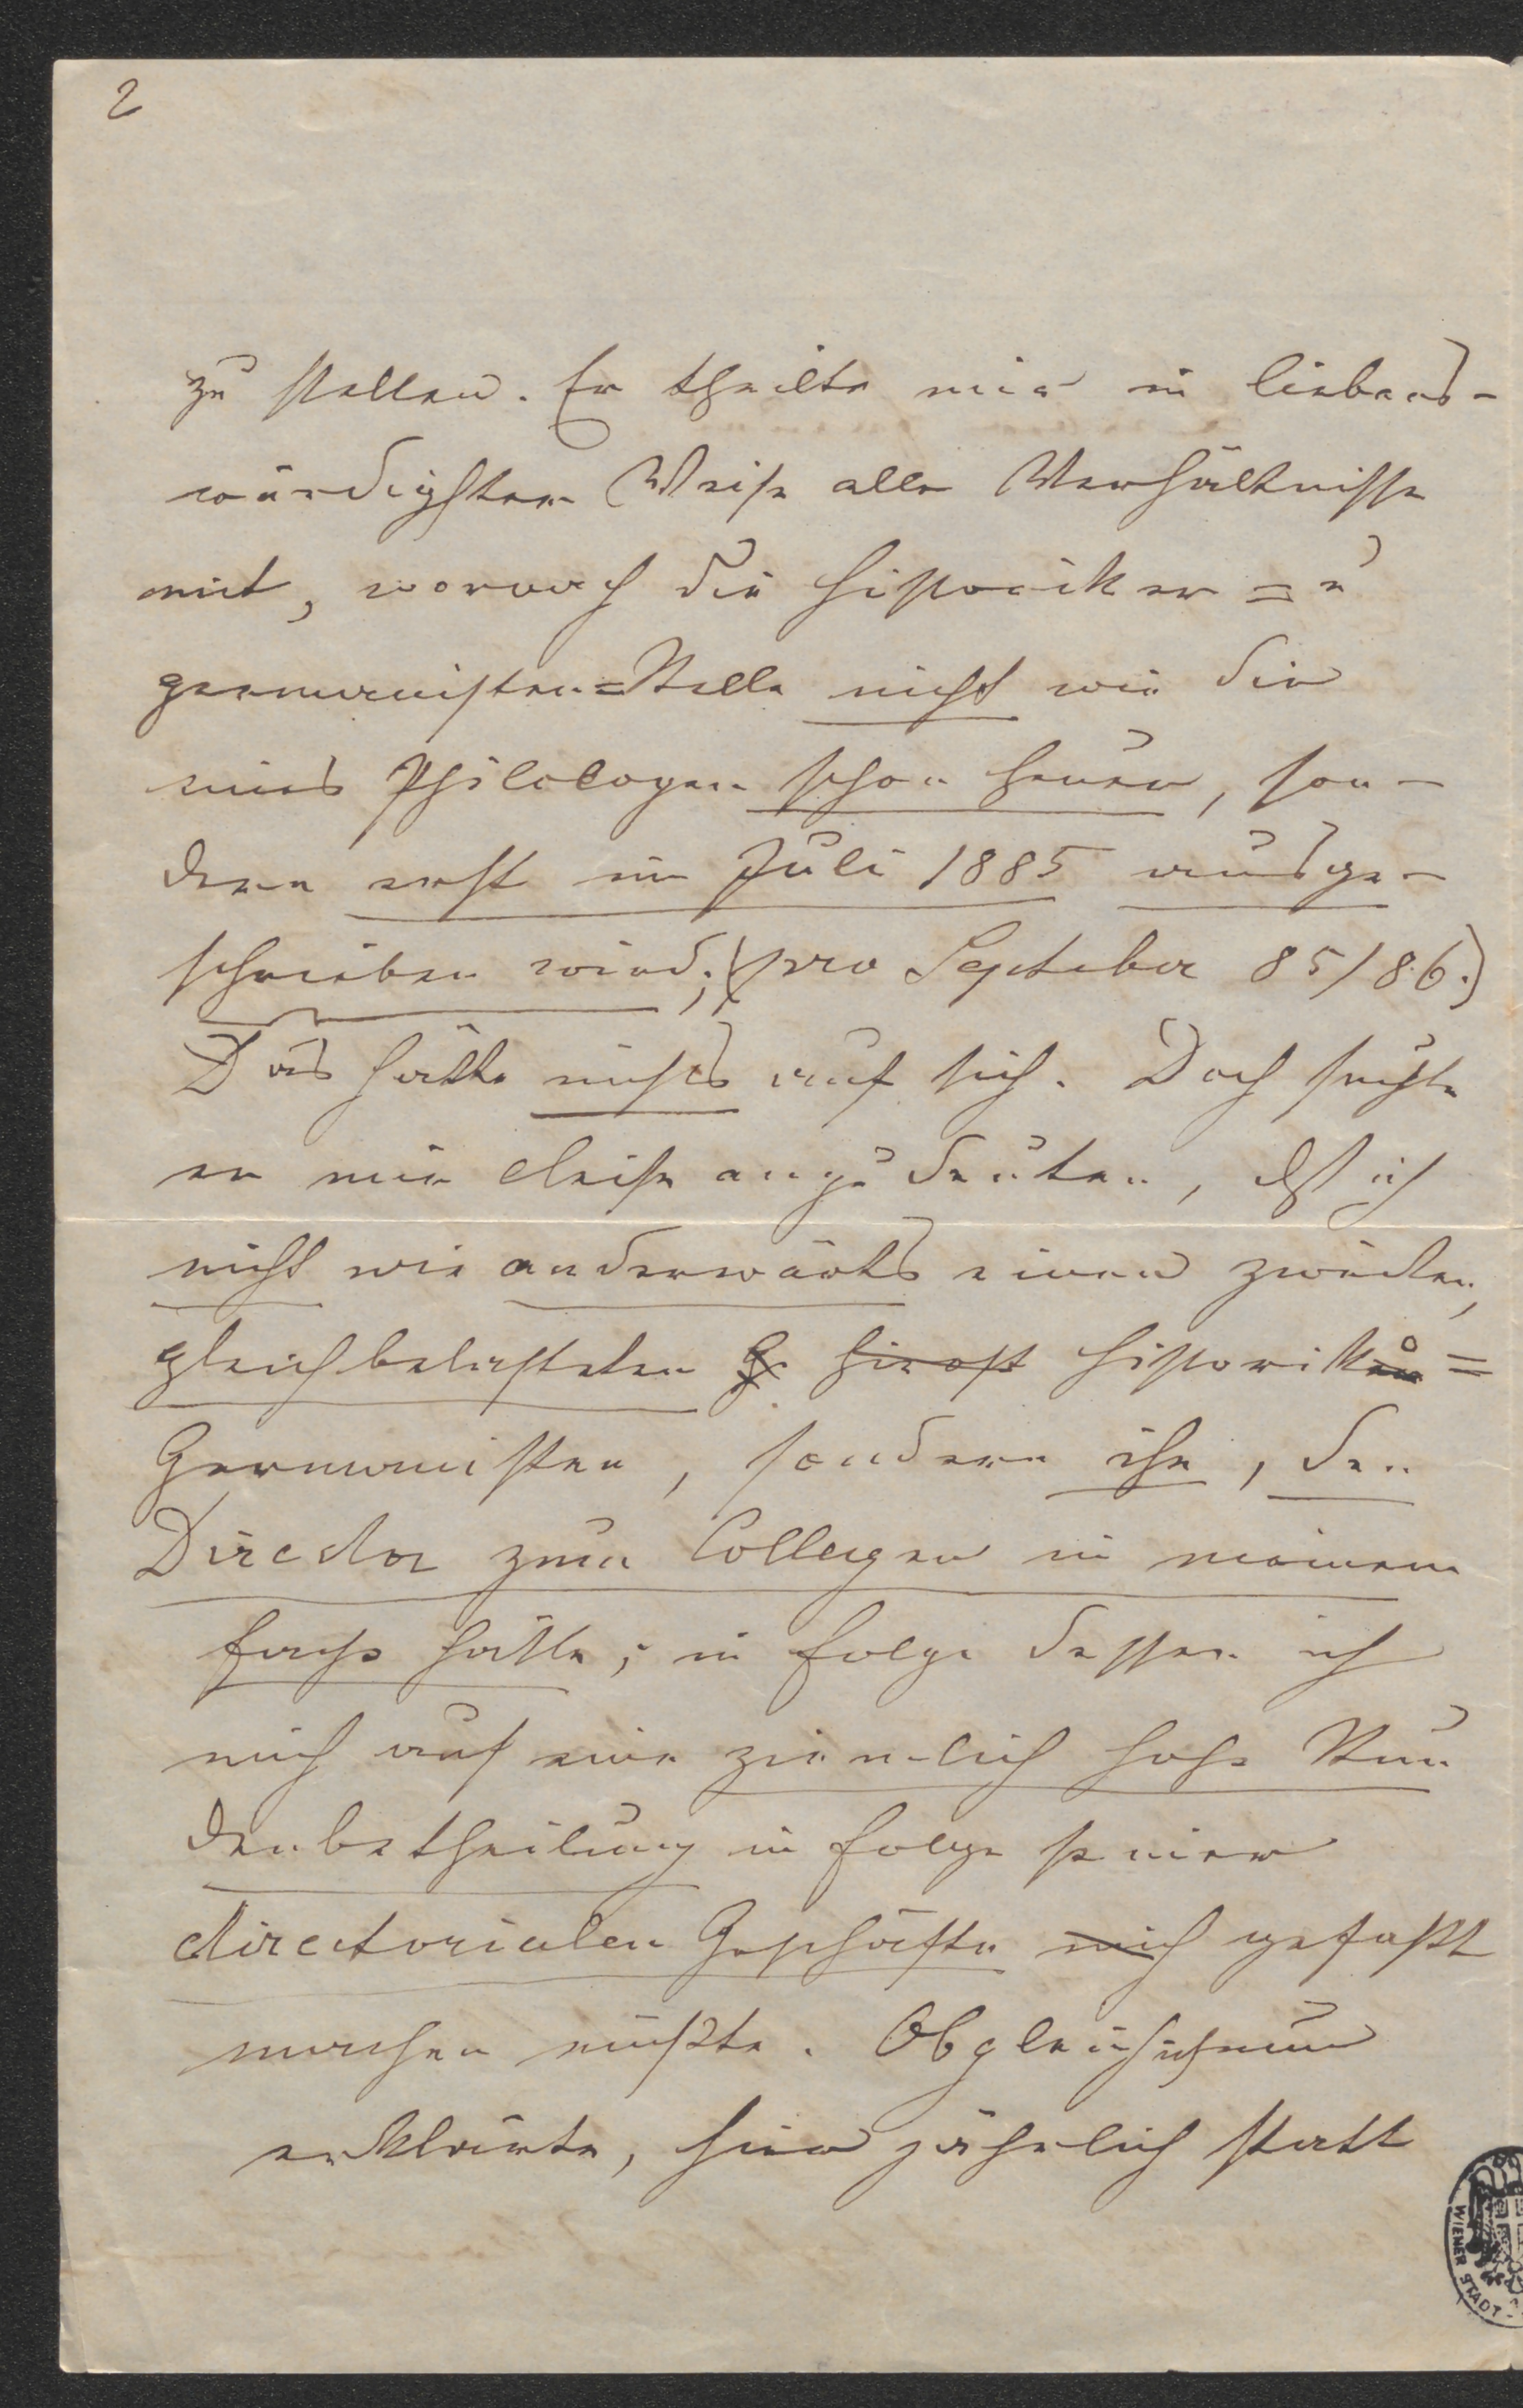 2
zu stellen. Er theilte mir in liebens-
würdigster Weise alle Verhältnisse
mit, wonach die Historiker = u
germanisten=Stelle nicht wie die
eines Philologen schon heuer, son-
dern erst im Juli 1885 ausge-
schrieben wird; (pro September 85/86.)
Das hätte nichts auf sich. Doch suchte
er mir leise anzudeuten, dß ich
nicht wie anderwärts einen zweiten,
gleichbelasteten G Historik=
Germanisten, sondern ihn, den
Director zum Collegen in meinem
Fache hätte; in Folge dessen ich
mich auf eine ziemlich hohe Stun
denbetheilung in Folge seiner
directorialen Geschäfte mich gefaßt
machen müßte. Obgleich ich nun
erklärte, hier jährlich statt
WIENER STADT-